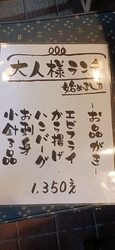 大人様ランチ
始めました
〜お品がき〜
エビフライ
かき揚げ
ハンバーグ
お刺身
小鉢3品
1,350え